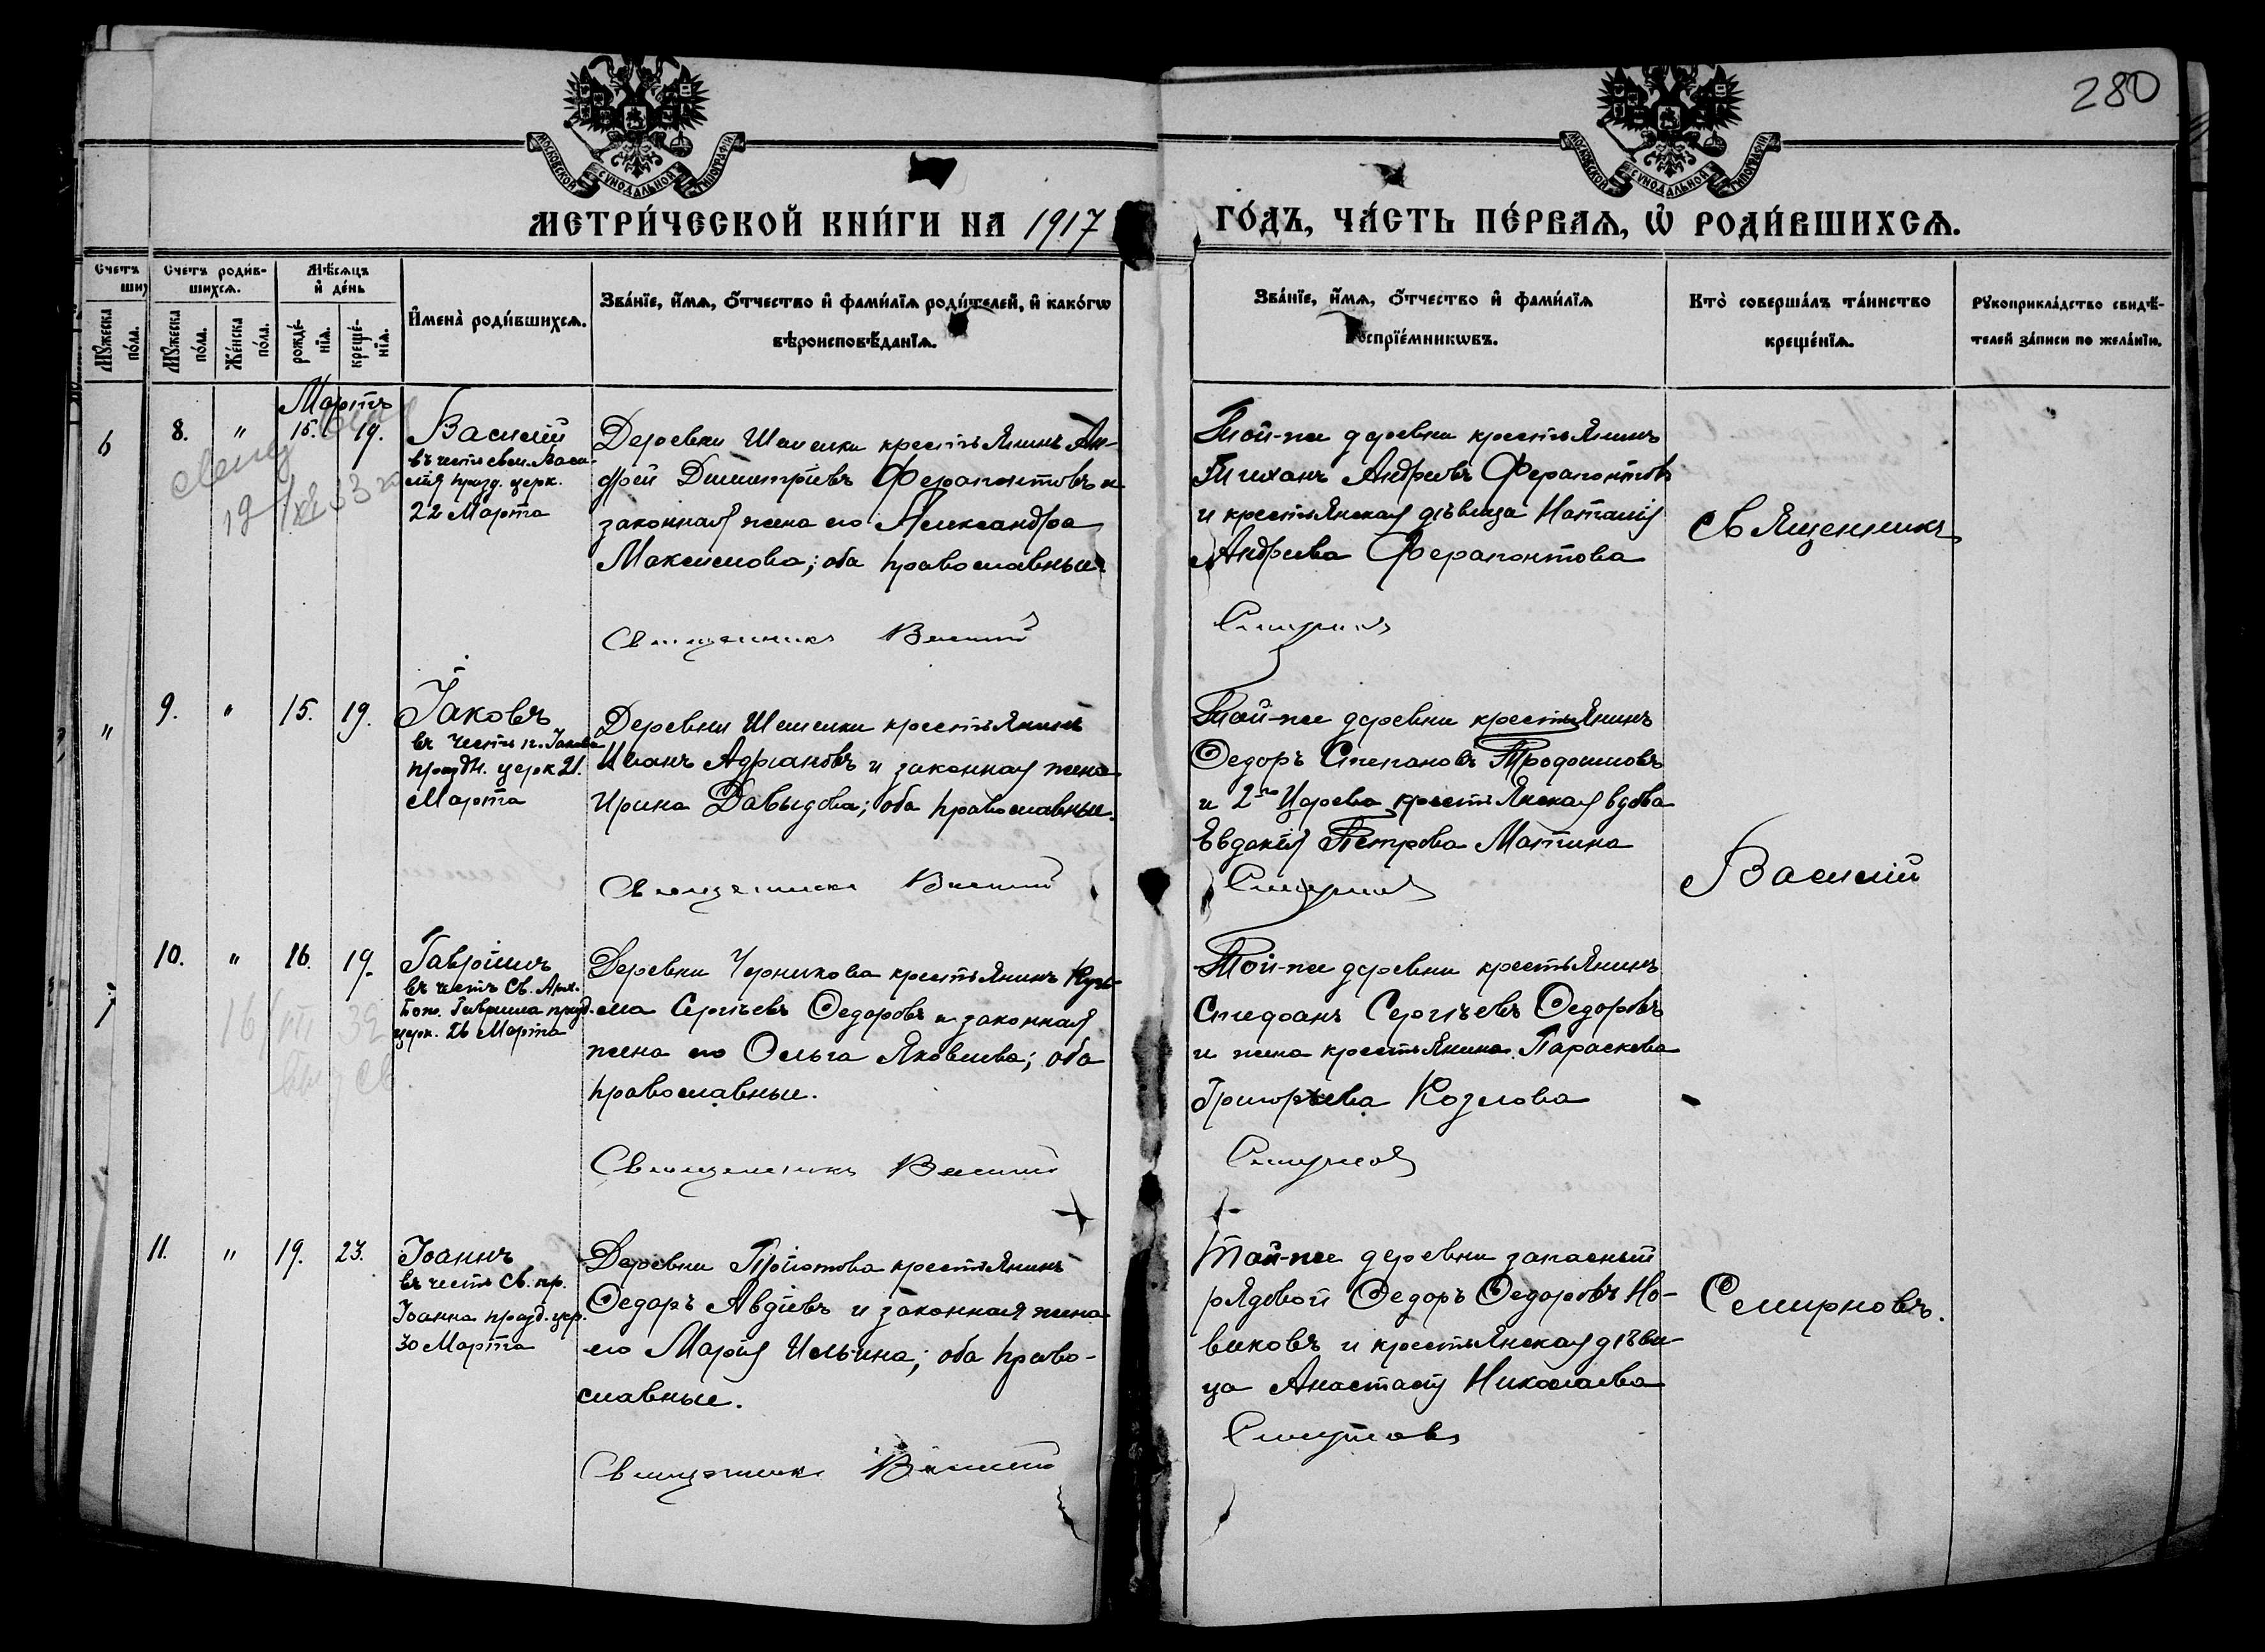 280
МОСКОВСКОЙ СУНОДАЛЬНОЙ ТИПОГРАФІИ
МОСКОВСКОЙ СУНОДАЛЬНОЙ ТИПОГРАФІИ
МЕТРИ́ЧЕСКОЙ КНИ́ГИ НА 1917
ГО́ДЪ, ЧА́СТЬ ПЕ́РВАѦ, Ѡ РОДИ́ВШИХСѦ.
Счетъ
ших
Мꙋжеска по́ла.
Счетъ роди́в-
шихсѧ.
Мꙋжеска по́ла.
Же́нска по́ла.
Мѣ́сѧцъ
и де́нь
рожде́-
нїѧ.
креще́-
нїѧ.
И҆мена̀ роди́вшихсѧ.
Зва́нїе, и҆́мѧ, ѻ҆́тчество и҆ фами́лїѧ роди́телей, и҆ како́гѡ
вѣроисповѣ́данїѧ.
Зва́нїе, и҆́мѧ, ѻ҆́тчество и҆ фами́лїѧ
воспрїе́мникѡвъ.
Кто̀ соверша́лъ та́инство
креще́нїѧ.
Рꙋкоприкла́дство свидѣ́-
телей за́писи по жела́нїю.
Мартъ
6
8. " 15. 19.
Василій
въ честь свм. Васи-
лія празд. церк.
22 Марта
Деревни Шемелки крестьянинъ Ан-
дрей Димитріевъ Ферапонтовъ и
законная жена его Александра
Максимова; оба православные
Священникъ Василій
Той-же деревни крестьянинъ
Тиханъ Андреевъ Ферапонтовъ
и крестьянская дѣвица Наталія
Андреева Ферапонтова
Смирновъ
Священникъ
"
9. " 15. 19.
Іаковъ
въ честь п. Іакова
праздн. церк 21.
Марта
Деревни Шемелки крестьянинъ
Иванъ Адріановъ и законная жена
Ирина Давыдова; оба православные.
Священникъ Василій
Той-же деревни крестьянинъ
Ѳедоръ Степановъ Трофимовъ
и 2-го Царева крестьянская вдова
Евдокія Петрова Матина
Смирновъ
Василій
10. " 16. 19.
Гавріилъ
въ честь Св. Арх.
Бож. Гавріила празд.
церк. 26 Марта
Деревни Черникова крестьянинъ Кузь-
ма Сергѣевъ Ѳедоровъ и законная
жена его Ольга Яковлева; оба
православные.
Священникъ Василій
Той-же деревни крестьянинъ
Стефанъ Сергѣевъ Ѳедоровъ
и жена крестьянина Параскева
Григорьева Козлова
Смирновъ
11. " 19. 23.
Іоаннъ
въ честь Св. пр.
Іоанна празд. цер.
30 Марта
крестьянинъ
Ѳедоръ Авдіевъ и законная жена
его Марія Ильина; оба право-
славные.
Священникъ Василій
Той-же деревни запасный
рядовой Ѳедоръ Ѳедоровъ Но-
виковъ и крестьянская дѣви-
ца Анастасія Николаева
Смирновъ
Смирновъ.